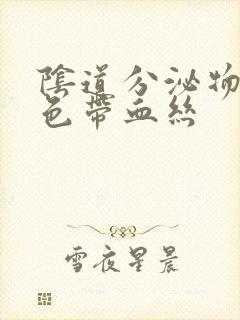 陰道分泌物
色帶血絲
雪夜星晨